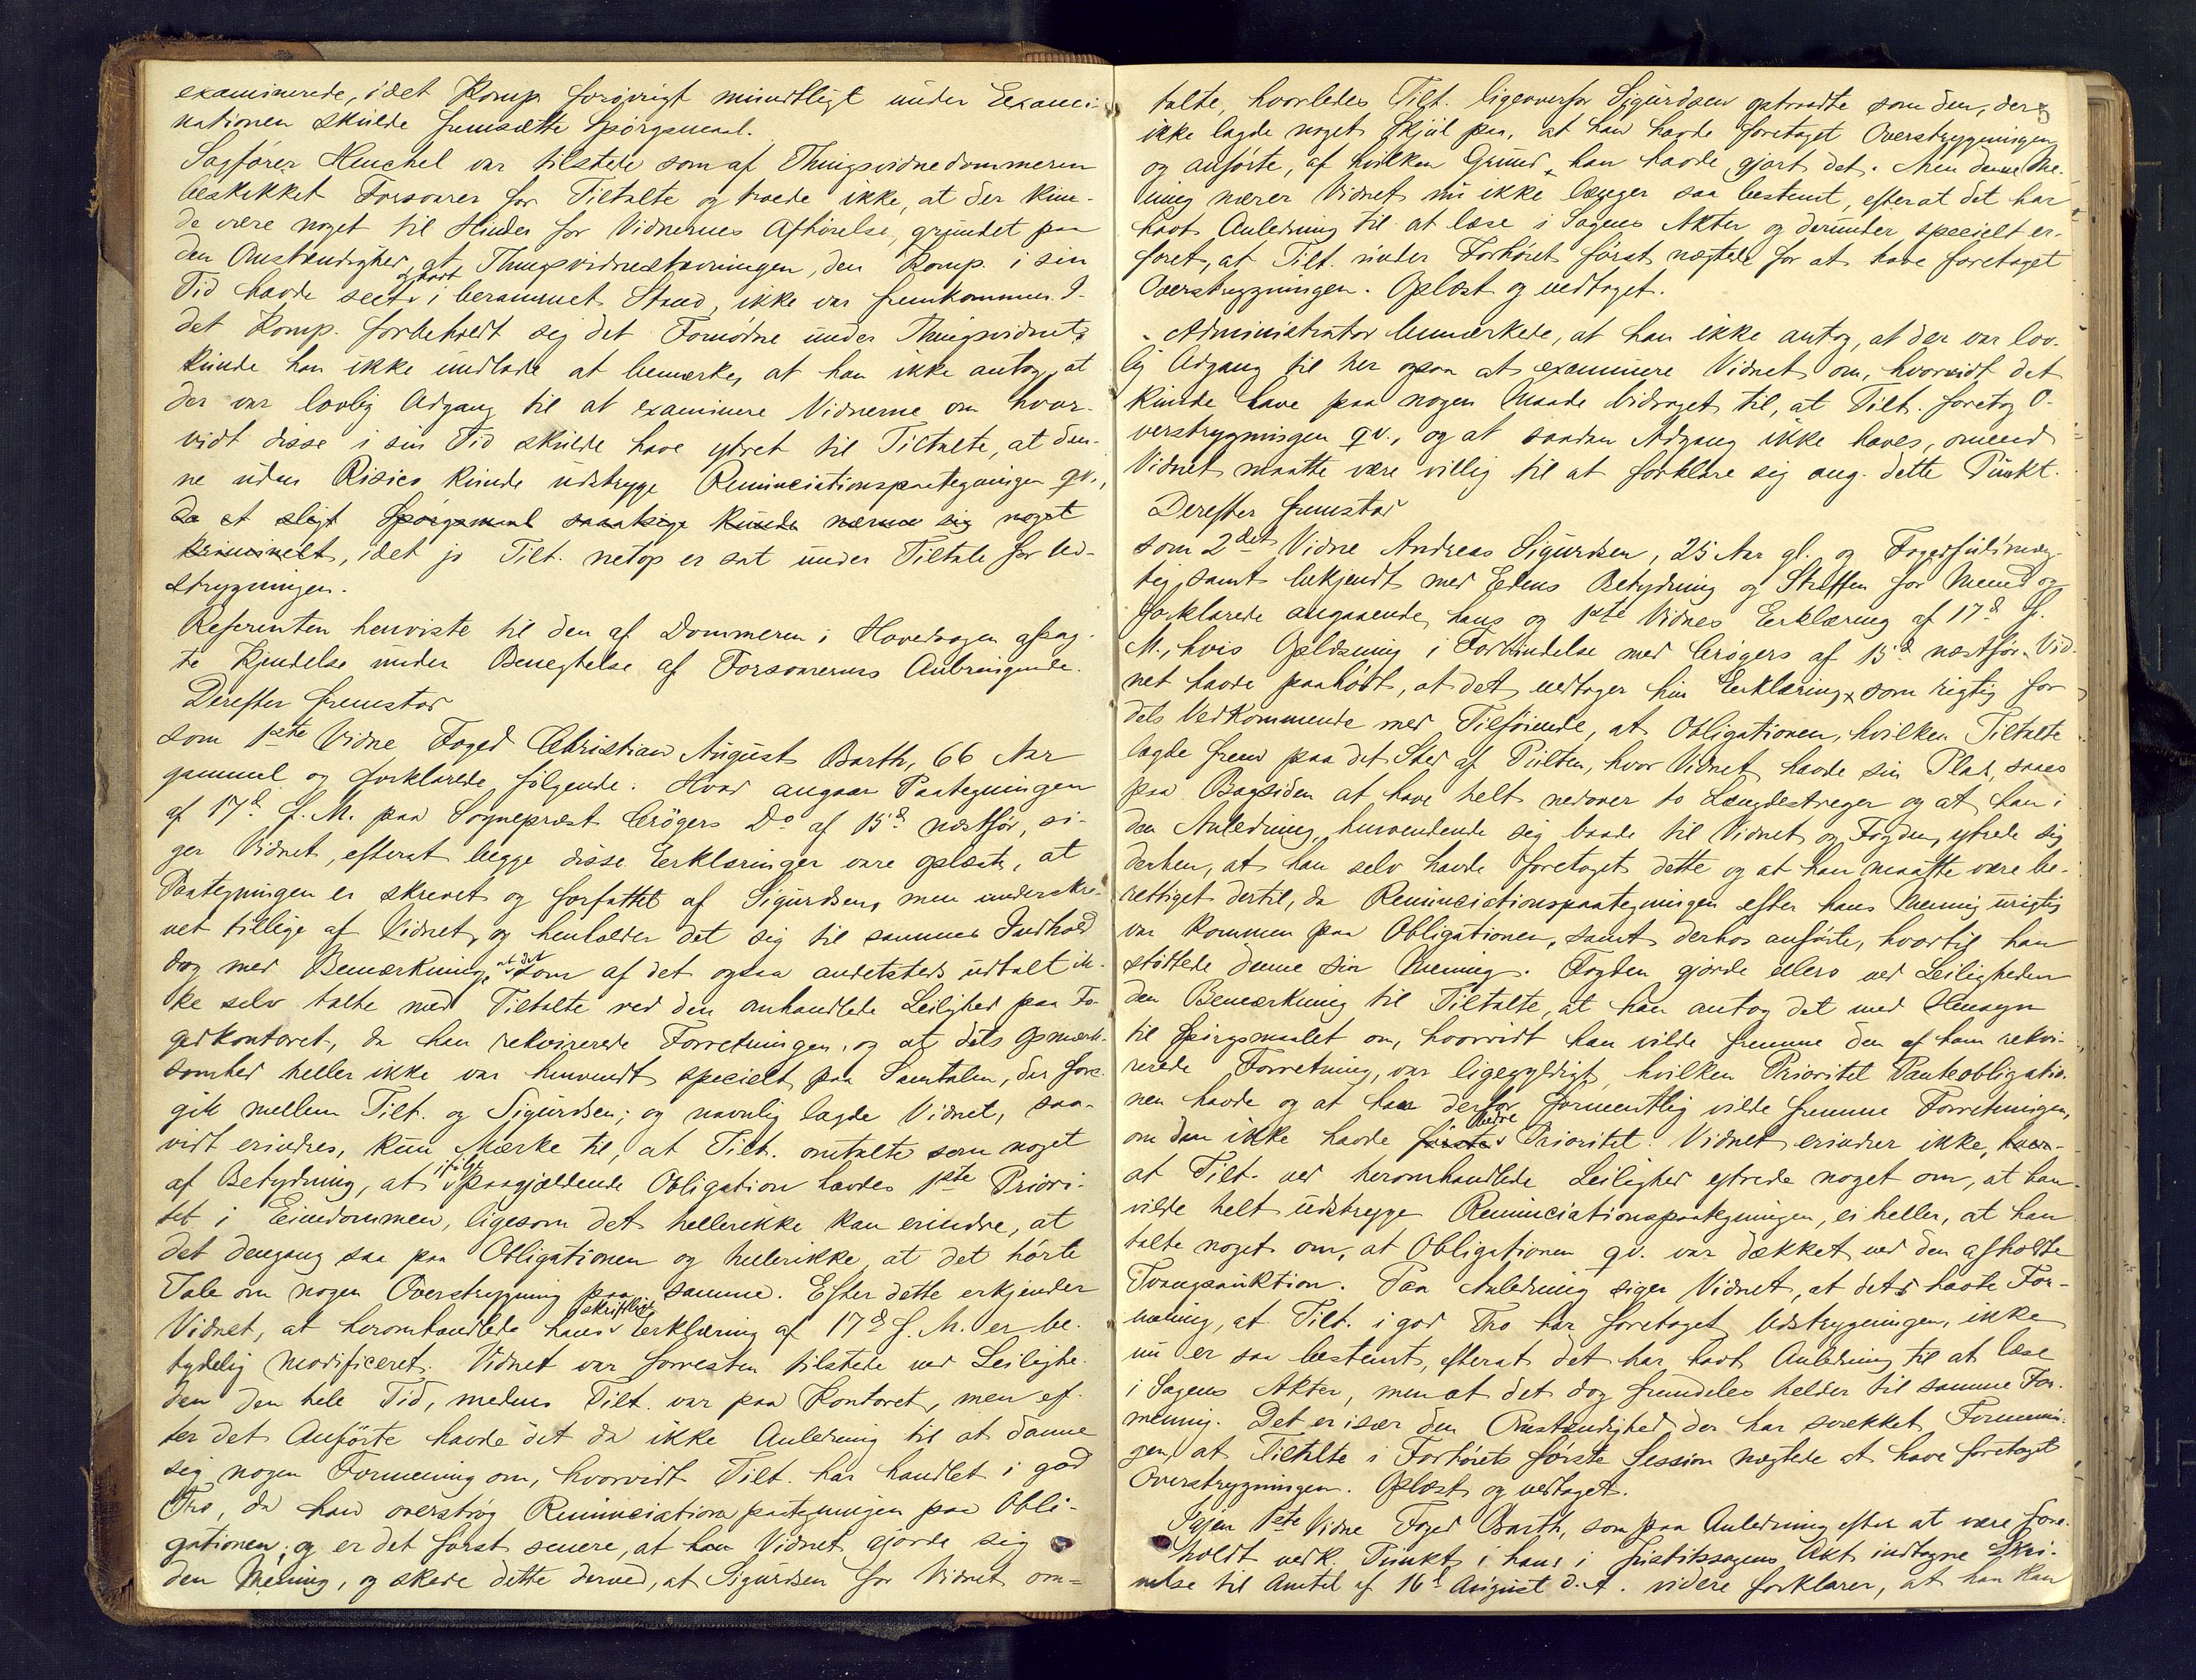 examinerede, idet Komp. forøvrigt mundtligt under Exami-
nationen skulde fremsætte Spørgsmaal.
Sagfører Henchel var tilstede som af Thingsvidnedommeren
beskikket Forsvarer for Tiltalte og troede ikke, at der kun-
de være noget til Hinder for Vidnernes Afhørelse, grundet paa
den Omstændighed, at Thingsvidnestævningen, den Komp. i sin
Tid havde seet og hørt i berammet Stand, ikke var fremkommen. I-
det Komp. forbeholdt sig det Fornødne under Thingsvidnet,
kunde han ikke undlade at bemærke, at han ikke antog, at
der var lovlig Adgang til at examinere Vidnerne om hvor-
vidt disse i sin Tid skulde have ytret til Tiltalte, at den-
ne uden Risico kunde udstryge Renunciationspaategningen qv.,
da et sligt Spørgsmaal saaatsige kunde nærme sig noget
kriminelt, idet jo Tilt. netop er sat under Tiltale for Ud-
strygningen.
Referenten henviste til den af Dommeren i Hovedsagen afsag-
te Kjendelse under Benegtelse af Forsvarerens Anbringende.
Derefter fremstod
som 1ste Vidne Foged Christian August Barth, 66 Aar
gammel og forklarede følgende: Hvad angaar Paategningen
af 17d. f. M. paa Sogneprest Crøgers Do af 15d. næstfør, si-
ger Vidnet, efterat begge disse Erklæringer vare oplæste, at
Paategningen er skrevet og forfattet af Sigurdsen, men underskre-
vet tillige af Vidnet, og henholder det sig til sammes Indhold
dog med Bemærkning, at det som af det ogsaa andetsteds udtalt ik-
ke selv talte med Tiltalte ved den omhandlede Leilighed paa Fo-
gedkontoret, da han rekvirerede Forretningen, og at dets Opmærk-
somhed heller ikke var henvendt specielt paa Samtalen, der fore-
gik mellem Tilt. og Sigurdsen; og navnlig lagde Vidnet, saa-
vidt erindres, kun Mærke til, at Tilt. omtalte som noget
af Betydning, at ifølge paagjældende Obligation havdes 1ste Priori-
tet i Eiendommen, ligesom det hellerikke kan erindre, at
det dengang saa paa Obligationen og hellerikke at det hørte
Tale om nogen Overstrygning paa samme. Efter dette erkjender
Vidnet, at heromhandlede hans skriftlige Erklæring af 17d. f. M. er be-
tydelig modificeret. Vidnet var forresten tilstede ved Leilighe-
den den hele Tid, medens Tilt. var paa Kontoret, men ef-
ter det Anførte havde det da ikke Anledning til at danne
sig nogen Formening om, hvorvidt Tilt. har handlet i god
Tro, da han overstrøg Renunciationspaategningen paa Obli-
gationen; og er det først senere, at han Vidnet gjorde sig
den Mening, og skede dette derved, at Sigurdsen for Vidnet om-
talte, hvorledes Tilt. ligeoverfor Sigurdsen optraadte som den, der
ikke lagde noget Skjul paa, at han havde foretaget Overstrygningen
og anførte, af hvilken Grund han havde gjort det. Men denne Me-
ning nærer Vidnet nu ikke længer saa bestemt, efterat det har
havt Anledning til at læse i Sagens Akter og derunder specielt er-
faret, at Tilt. under Forhøret først nægtede for at have foretaget
Overstrygningen. Oplæst og vedtaget.
Administrator bemærkede, at han ikke antog, at der var lov-
lig Adgang til her ogsaa at examinere Vidnet om, hvorvidt det
kunde have paa nogen Maade bidraget til, at Tilt. foretog O-
verstrygningen qv., og at saadan Adgang ikke haves, omend
Vidnet maatte være villig til at forklare sig ang. dette Punkt.
Derefter fremstod
som 2det Vidne Andreas Sigurdsen, 25 Aar gl. og Fogedfuldmæg-
tig, samt bekjendt med Edens Betydning og Straffen for Meened og
forklarede angaaende hans og 1ste Vidnes Erklæring af 17d. f.
M., hvis Oplæsning i Forbindelse med Crøgers af 15d. næstfør Vid-
net havde paahørt, at det vedtager hin Erklæring som rigtig for
dets Vedkommende med Tilføiende, at Obligationen, hvilken Tiltalte
lagde frem paa det Sted af Pulten, hvor Vidnet havde sin Plads, saaes
paa Bagsiden at have helt nedover to Længdestreger og at han i
den Anledning, henvendende sig baade til Vidnet og Fogden, ytrede sig
derhen, at han selv havde foretaget dette og at han maatte være be-
rettiget dertil, da Renunciationspaategningen efter hans Mening urigtig
var kommen paa Obligationen, samt derhos anførte, hvortil han
støttede denne sin Mening. Fogden gjorde ellers ved Leiligheden
den Bemærkning til Tiltalte, at han antog det med Hensyn
til Spørgsmaalet om, hvorvidt han vilde fremme den af ham rekvi-
rerede Forretning, var ligegyldigt, hvilken Prioritet Panteobligatio-
nen havde og at han derfor formentlig vilde fremme Forretningen,
om den ikke havde første bedre Prioritet. Vidnet erindrer ikke, hver-
at Tilt. ved heromhandlede Leilighed ytrede noget om, at han
vilde helt udstryge Renunciationspaategningen, ei heller, at han
talte noget om, at Obligationen qv. var dækket ved den afholdte
Tvangsauktion. Paa Anledning siger Vidnet, at dets havte For-
mening, at Tilt. i god Tro har foretaget Udstrygningen, ikke
nu er saa bestemt, efterat det har havt Anledning til at læse
i Sagens Akter, men at det dog fremdeles helder til samme For-
mening. Det er især den Omstændighed, der har svækket Formenin-
gen, at Tiltalte i Forhørets første Session nægtede at have foretaget
Overstrygningen. Oplæst og vedtaget.
Igjen 1ste Vidne Foged Barth, som paa Anledning efter at være fore-
holdt vedk. Punkt i hans i Justitssagens Akt indtagne Skri-
velse til Amtet af 16d. August d. A. videre forklarer, at han kan